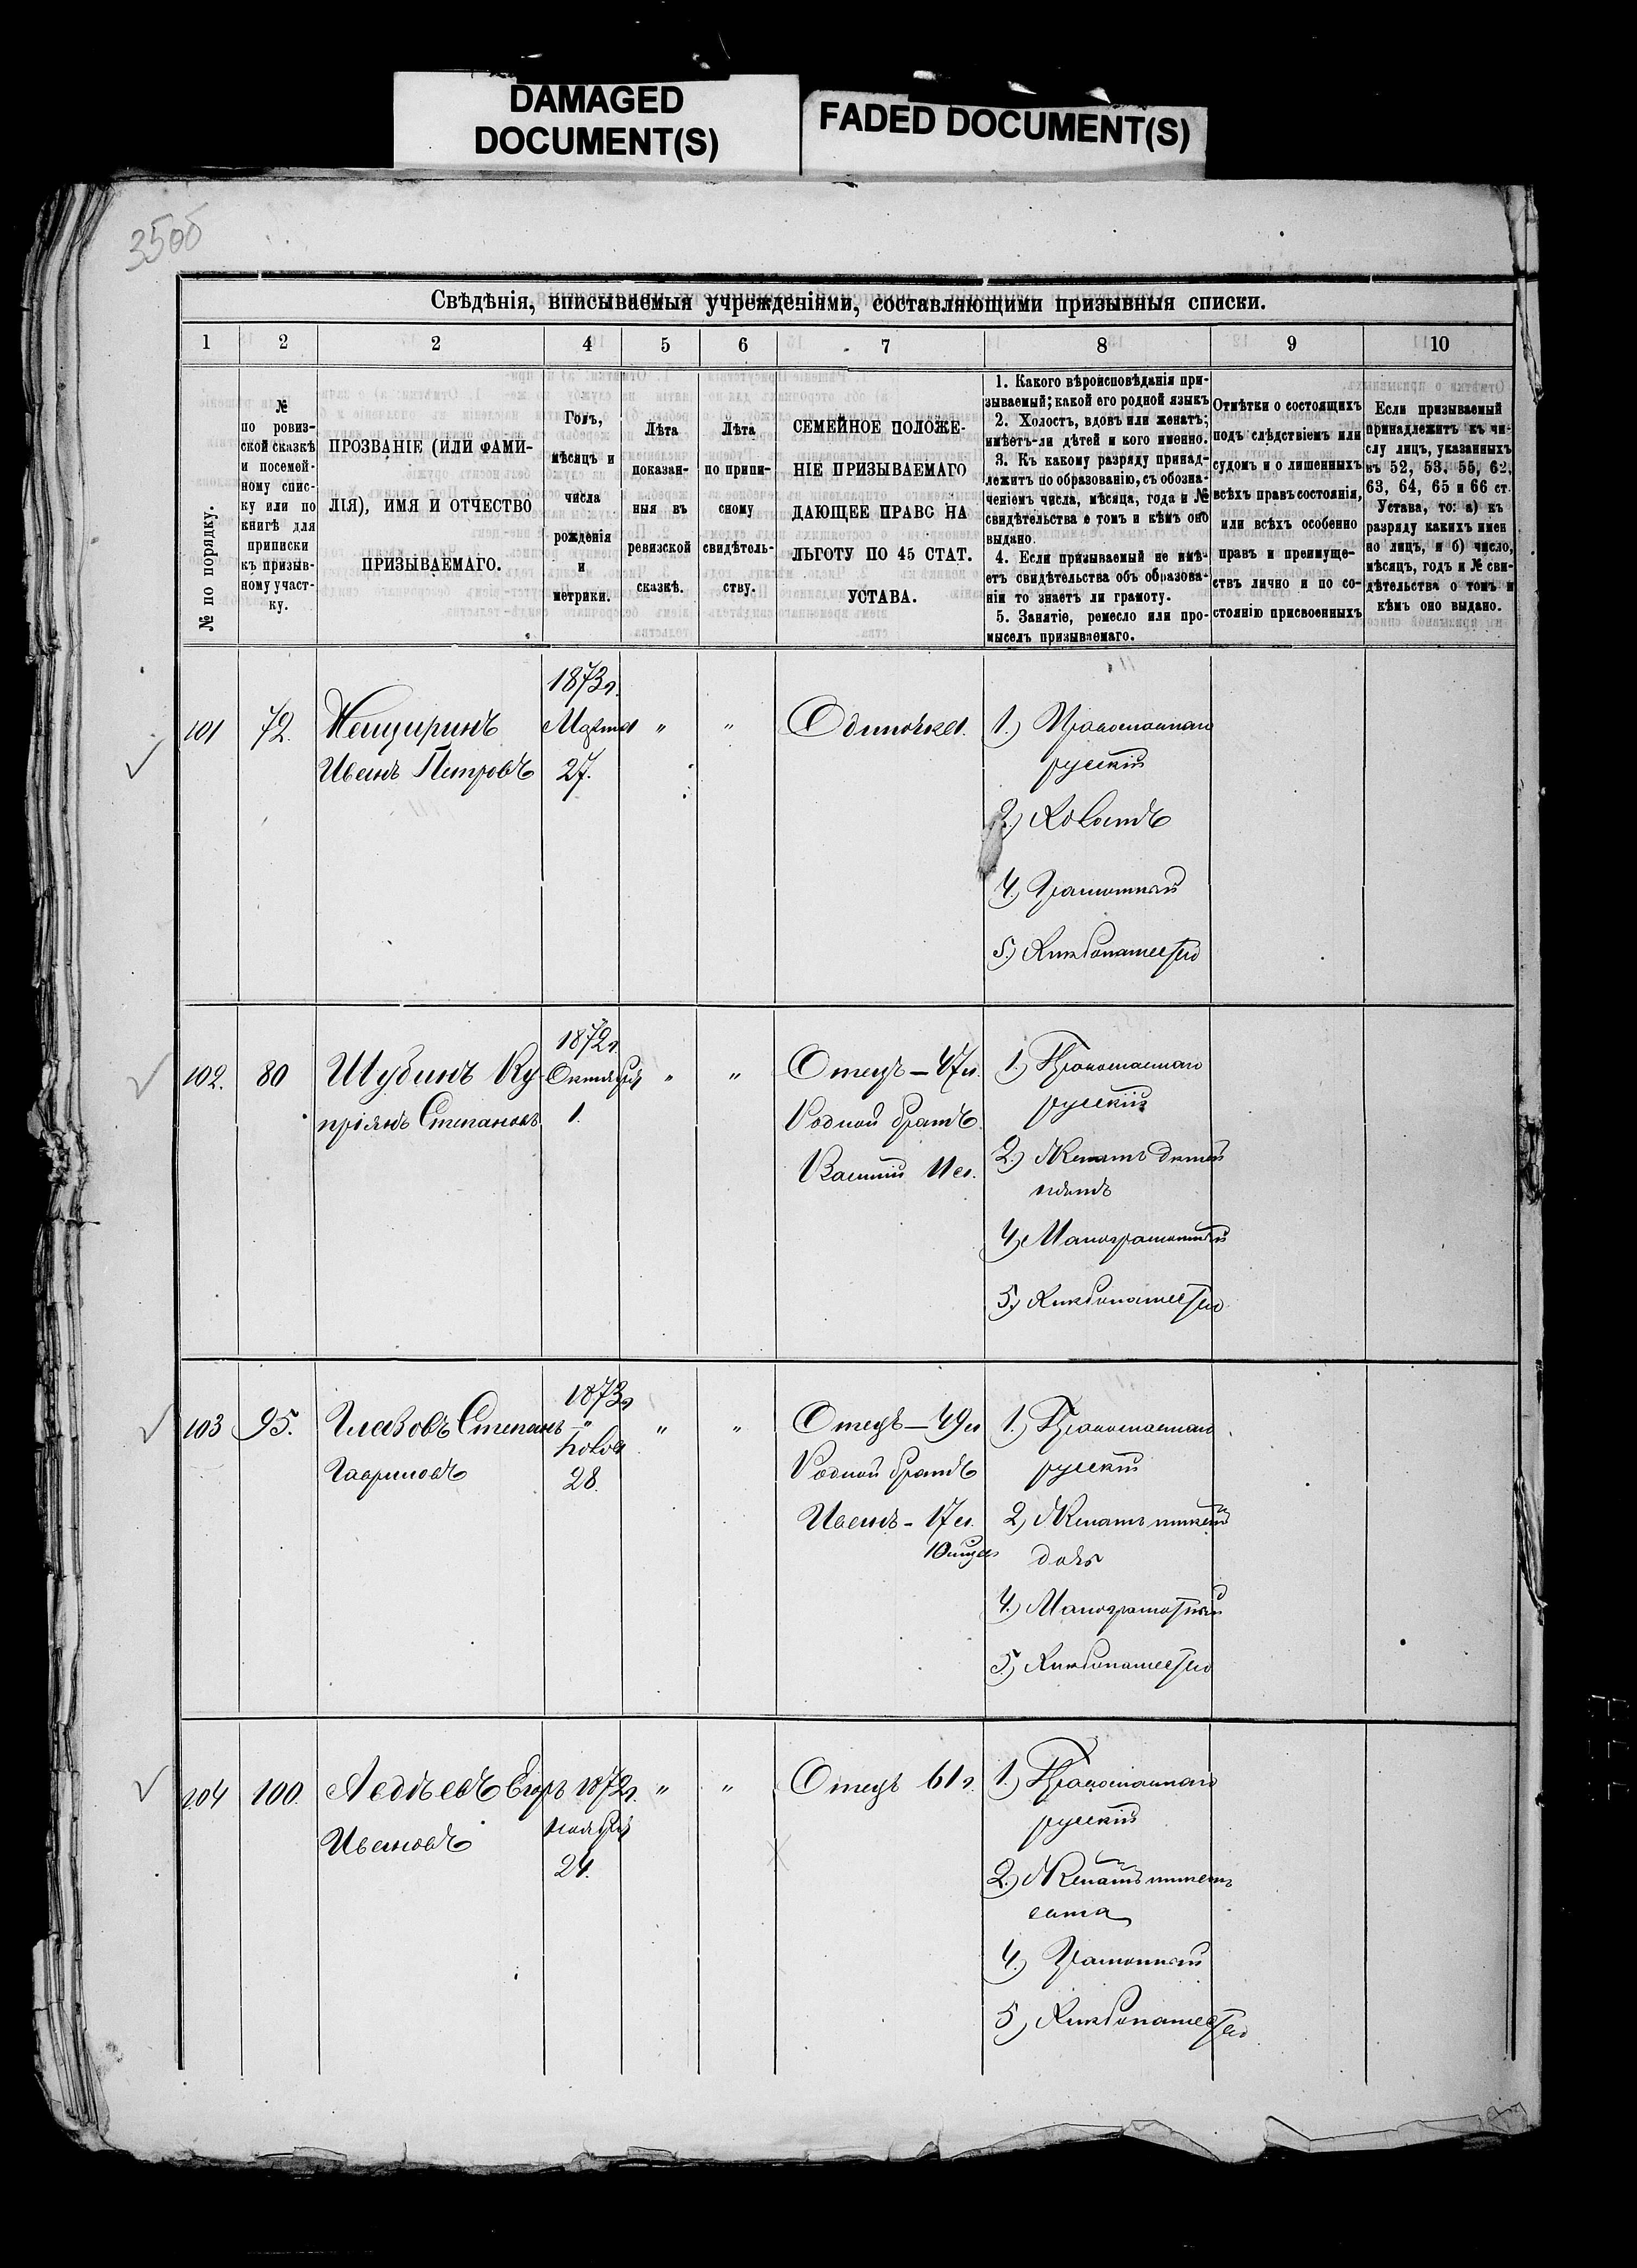 DAMAGED
DOCUMENT(S)
FADED DOCUMENT(S)
Свѣдѣнія, вписываемыя учрежденіями, составляющими призывныя списки.
1 2 2 4 5 6 7 8 9 10
№ по порядку.
№
по ровиз-
ской сказкѣ
и посемей-
ному спис-
ку или по
книгѣ для
приписки
къ призыв-
ному участ-
ку.
ПРОЗВАНІЕ (ИЛИ ФАМИ-
ЛІЯ), ИМЯ И ОТЧЕСТВО
ПРИЗЫВАЕМАГО.
Годъ,
мѣсяцъ и
числа
рожденія
и
метрики.
Лѣта
показан-
ныя въ
ревизской
сказкѣ.
Лѣта
по припи-
сному
свидѣтель-
ству.
СЕМЕЙНОЕ ПОЛОЖЕ-
НІЕ ПРИЗЫВАЕМАГО
ДАЮЩЕЕ ПРАВО НА
ЛЬГОТУ ПО 45 СТАТ.
УСТАВА.
1. Какого вѣроисповѣданія при-
зываемый; какой его родной языкъ
2. Холостъ, вдовъ или женатъ;
имѣетъ-ли дѣтей и кого именно.
3. Къ какому разряду принад-
лежитъ по образованію, съ обозна-
ченіемъ числа, мѣсяца, года и №
свидѣтельства о томъ и кѣмъ оно
выдано.
4. Если призываемый не имѣ-
етъ свидѣтельства объ образова-
ніи то знаетъ ли грамоту.
5. Занятіе, ремесло или про-
мыселъ призываемаго.
Отмѣтки о состоящихъ
подъ слѣдствіемъ или
судомъ и о лишенныхъ
всѣхъ правъ состоянія,
или всѣхъ особенно
правъ и преимуще-
ствъ лично и по со-
стоянію присвоенныхъ
Если призываемый
принадлежитъ къ чи-
слу лицъ, указанныхъ
въ 52, 53, 55, 62,
63, 64, 65 и 66 ст.
Устава, то: а) къ
разряду какихъ имен
но лицъ, и б) число,
мѣсяцъ, годъ и № сви-
дѣтельства о томъ и
кѣмъ оно выдано.
101
72.
Иванъ Петровъ
1873г.
Марта
27.
"
"
Одиночка.
1.) Православнаго
русскій
2.) Холостъ
4.) Грамотный
5.) Хлѣбопашество
102.
80
Шубинъ Ку-
пріянъ Степановъ
1872г.
Октября
1.
"
"
Отецъ — 47л.
Родной братъ
Василій 11 л.
1.) Православнаго
русскій
2.) Женатъ дѣтей
нѣтъ
4.) Малограмотный
5.) Хлѣбопашество
103
95.
Глазовъ Степанъ
Гавриловъ
1873г
Іюля
28.
"
"
Отецъ — 49л
Родной братъ
Иванъ - 17 л.
10 мца
1.) Православнаго
русскій
2.) Женатъ имѣетъ
дочь
4.) Малограмотный
5.) Хлѣбопашество
104
100.
Авдѣевъ Егоръ
Ивановъ
1872г.
Ноября
24.
"
"
Отецъ 61 г.
1.) Православнаго
русскій
2.) Женатъ имѣетъ
сына
4.) Грамотный
5.) Хлѣбопашество